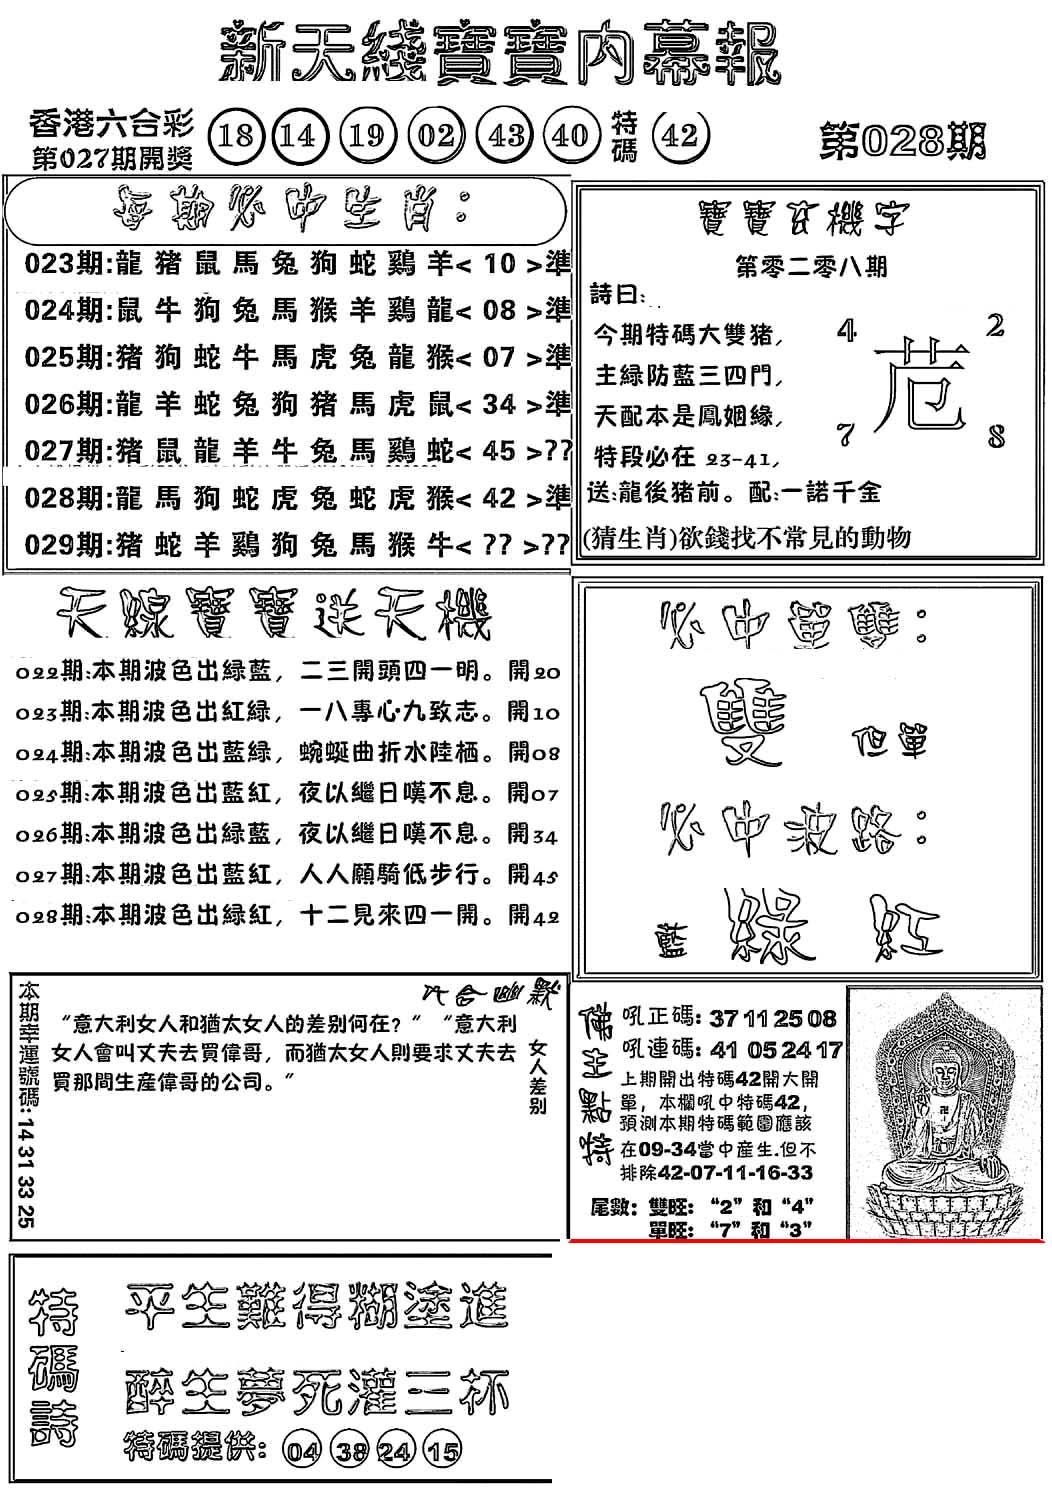 新天綫寶寶內幕報
香港六合彩
第027期開獎
18 14 19 02 43 40 特碼 42
第028期
每期必中生肖：
023期:龍豬鼠馬兔狗蛇鷄羊< 10 >準
024期:鼠牛狗兔馬猴羊鷄龍< 08 >準
025期:猪狗蛇牛馬虎兔龍猴< 07 >準
026期:龍羊蛇兔狗猪馬虎鼠< 34 >準
027期:猪鼠龍羊牛兔馬鷄蛇< 45 >??
028期:龍馬狗蛇虎兔蛇虎猴< 42 >準
029期:猪蛇羊鷄狗兔馬猴牛< ?? >??
寶寶玄機字
第零二零八期
詩曰:
今期特碼大雙猪,
主緑防藍三四門,
天配本是鳳姻緣,
特段必在 23-41,
4 2
苊
7 8
送:龍後猪前。配:一諾千金
(猜生肖)欲錢找不常見的動物
天線寶寶送天機
022期:本期波色出緑藍，二三開頭四一明。開20
023期:本期波色出紅緑，一八專心九致志。開10
024期:本期波色出藍緑，蜿蜒曲折水陸栖。開08
025期:本期波色出藍紅，夜以繼日嘆不息。開07
026期:本期波色出緑藍，夜以繼日嘆不息。開34
027期:本期波色出藍紅，人人願騎低步行。開45
028期:本期波色出緑紅，十二見來四一開。開42
必中單雙：
雙 但單
必中波路：
藍 綠 紅
本期幸運號碼:14 31 33 25
六合幽默
“意大利女人和猶太女人的差别何在？”“意大利
女人會叫丈夫去買偉哥，而猶太女人則要求丈夫去
買那間生産偉哥的公司。”
女人差别
佛主點特
吼正碼: 37 11 25 08
吼連碼: 41 05 24 17
上期開出特碼42開大開
單，本欄吼中特碼42，
預測本期特碼範圍應該
在09-34當中産生.但不
排除42-07-11-16-33
尾數：雙旺：“2”和“4”
單旺：“7”和“3”
特碼詩
平生難得糊塗進
醉生夢死灌三杯
特碼提供: 04 38 24 15